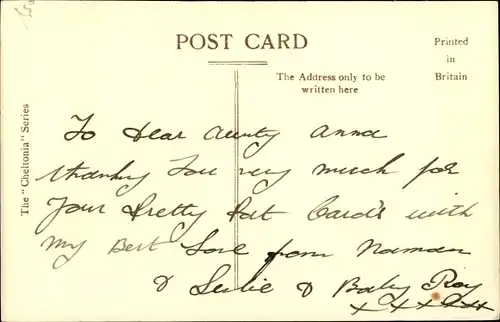 POST CARD
Printed
in
Britain
The Address only to be
written here
The "Cheltonia" Series
To Dear Aunty Anna
thanking you very much for
your Pretty Post Cards with
my Best Love from Naman
& Leslie & Baby Roy
x x x x x